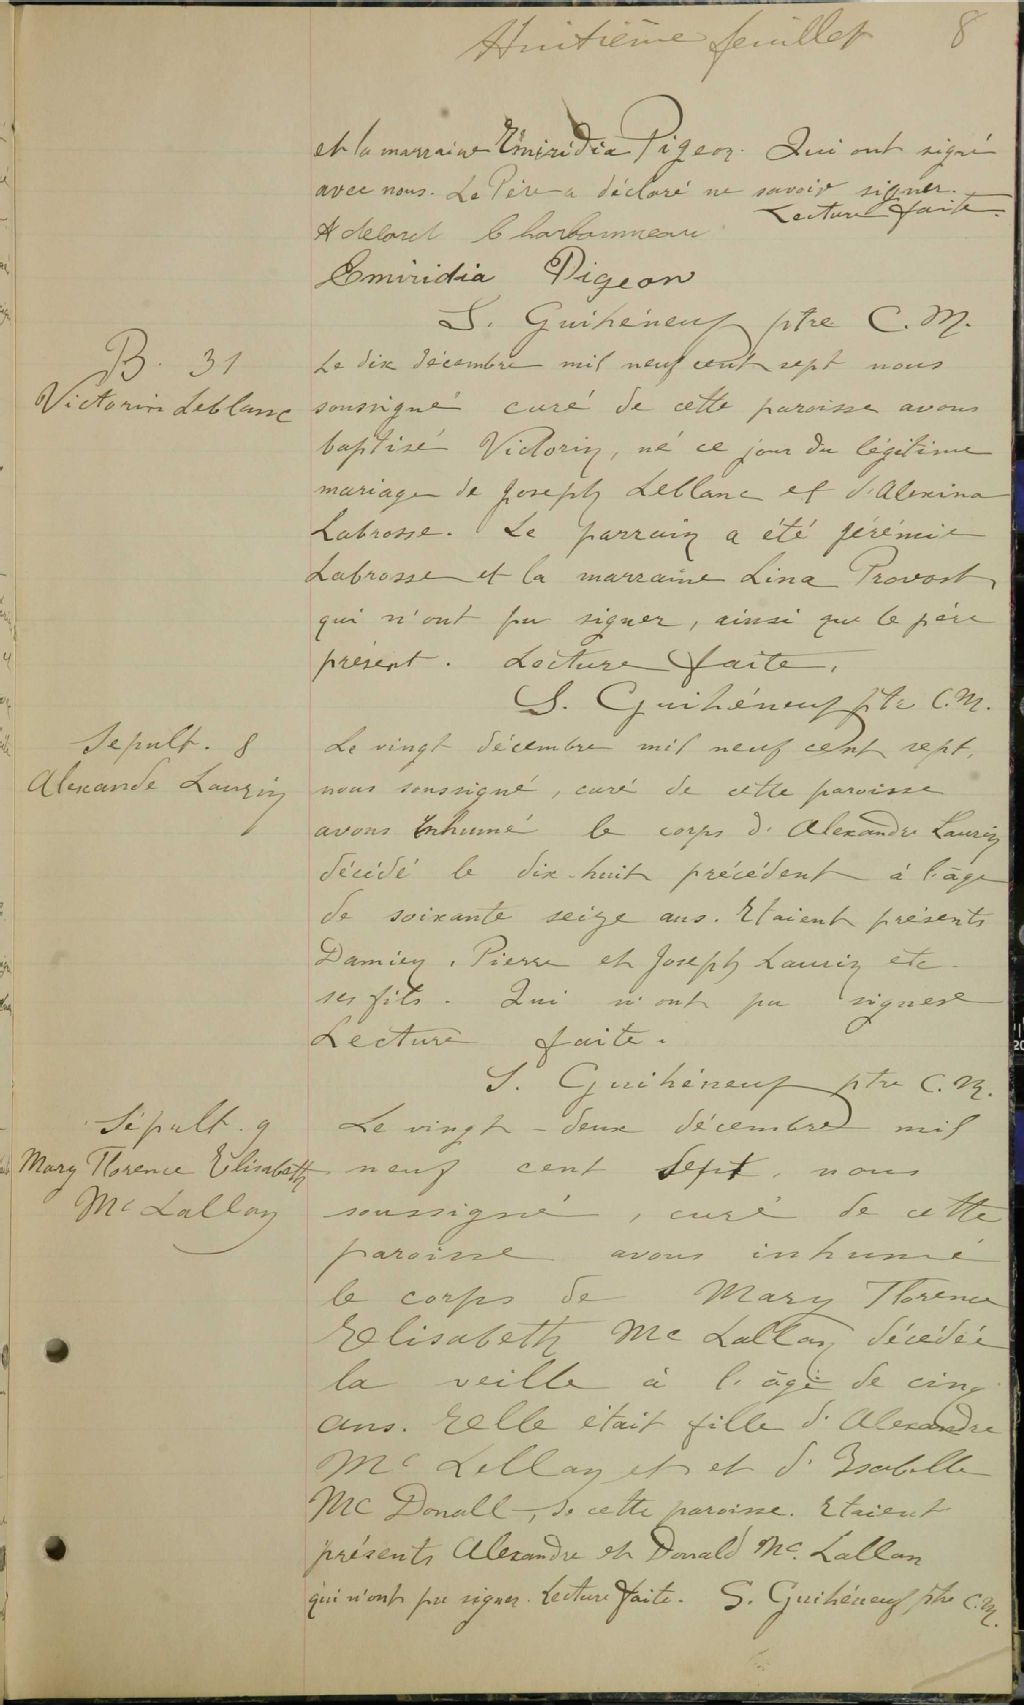 Huitième feuillet 8
et la marraine Emiridia Pigeon. Qui ont signé
avec nous. Le Père a déclaré ne savoir signer.
Lecture faite.
Adelard Charbonneau
Emiridia Pigeon
S. Guihéneuf ptre C. M.
B. 31
Victorin Leblanc
Le dix décembre mil neuf cent sept nous
soussigné curé de cette paroisse avons
baptisé Victorin, né ce jour du légitime
mariage de Joseph Leblanc et d'Alexina
Labrosse. Le parrain a été Jérémie
Labrosse et la marraine Lina Provost
qui n'ont pu signer, ainsi que le père
présent. Lecture faite.
S. Guihéneuf ptre C. M.
Sepult. 8
Alexande Lauzin
Le vingt décembre mil neuf cent sept,
nous soussigné, curé de cette paroisse
avons inhumé le corps d'Alexandre Lauzin
décédé le dix-huit précédent à l'âge
de soixante seize ans. Etaient présents
Damien, Pierre et Joseph Lauzin etc.
ses fils. Qui n'ont pu signer
Lecture faite.
S. Guihéneuf ptre C. M.
Sépult. 9
Mary Florence Elisabeth
Mc Lallan
Le vingt-deux décembre mil
neuf cent sept, nous
soussigné, curé de cette
paroisse avons inhumé
le corps de Mary Florence
Elisabeth Mc Lallan décédée
la veille à l'âge de cinq
ans. Elle était fille d'Alexandre
Mc Lellan et et d'Isabelle
Mc Donall, de cette paroisse. Etaient
présents Alexandre et Donald Mc. Lallan
qui n'ont pu signer. Lecture faite. S. Guihéneuf ptre C. M.